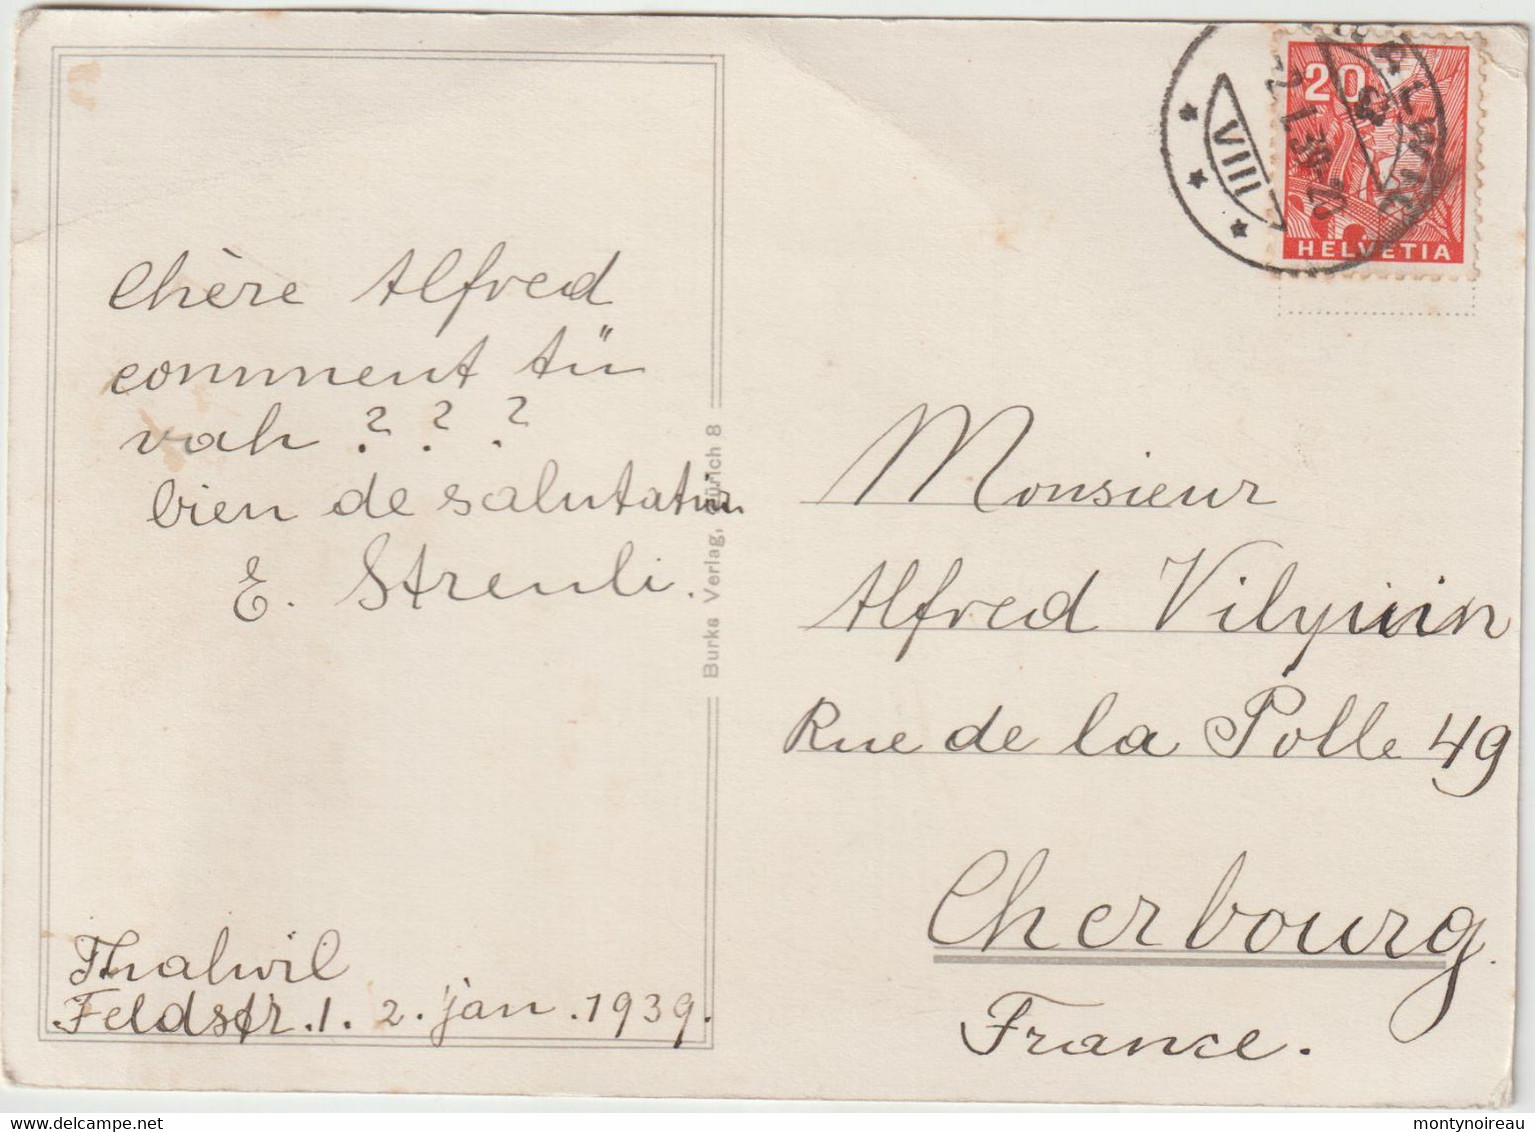 Chère Alfred
comment tü
vah ? ? ?
bien de salutation
E. Streuli.
Thalwil
Feldstr. 1. 2. jan. 1939.
Burka Verlag, Zürich 8
20
HELVETIA
THALWIL
2. I. 39-20
VIII
Monsieur
Alfred
Rue de la Polle 49
Cherbourg.
France.
montynoireau